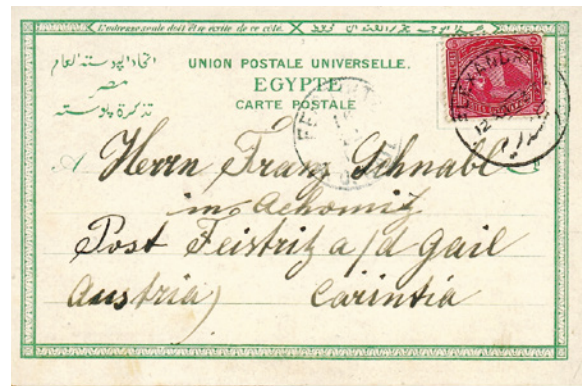 L'adresse seule doit être écrite de ce côté.
اتحاد البوسته العام
مصر
تذكرة بوسته
UNION POSTALE UNIVERSELLE.
EGYPTE
CARTE POSTALE
ALEXANDRIA
Herrn Franz Schnabl
in Achomitz
Post Feistritz a/d Gail
Austria) Carintia